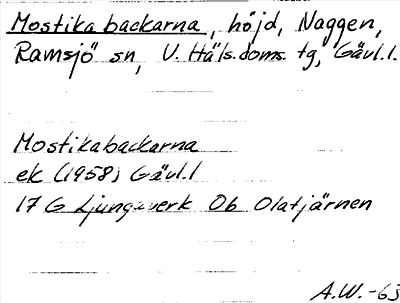 Mostikabackarna, höjd, Naggen,
Ramsjö sn, V. Häls. doms. tg, Gävl. l.
Mostikabackarna
ek (1958) Gävl. l
17 G Ljungaverk Ob Olatjärnen
A.W. -63